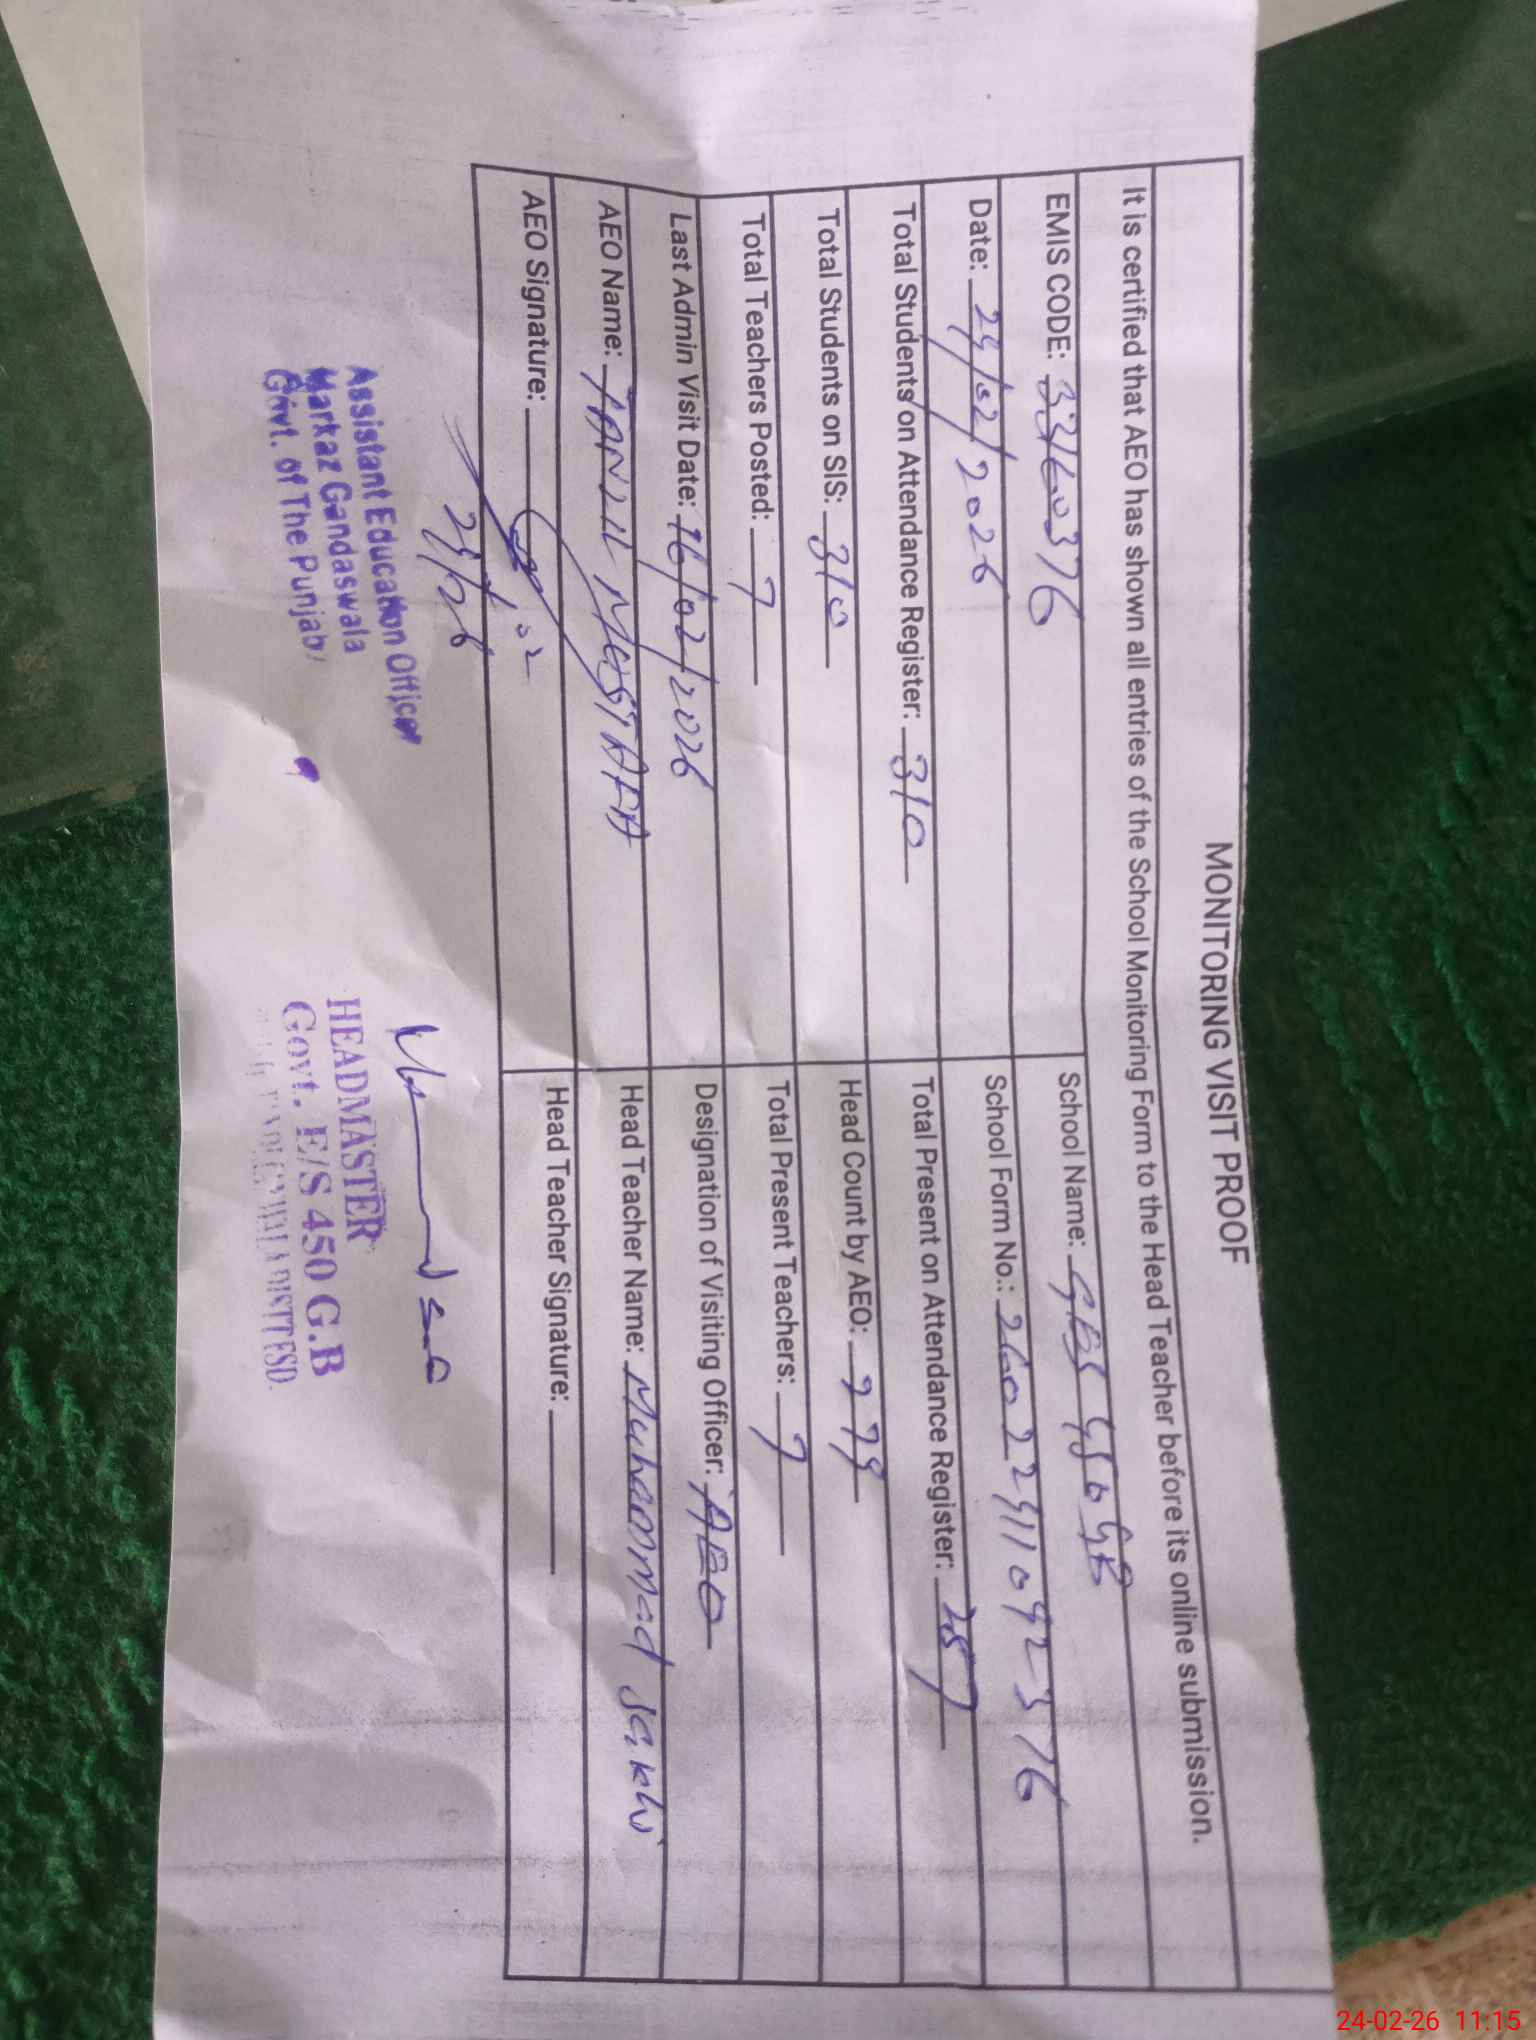 MONITORING VISIT PROOF
It is certified that AEO has shown all entries of the School Monitoring Form to the Head Teacher before its online submission.
EMIS CODE: 33160376 School Name: GES 450 GB
Date: 24/02/2026 School Form No.: 26022411092376
Total Students on Attendance Register: 310 Total Present on Attendance Register: 287
Total Students on SIS: 310 Head Count by AEO:
Total Teachers Posted: 7 Total Present Teachers: 7
Last Admin Visit Date: 16/02/2026 Designation of Visiting Officer: AEO
AEO Name: TANZIL MUSTAFA Head Teacher Name: Muhammad Sakhi
AEO Signature: Head Teacher Signature:
Assistant Education Officer
Markaz Gandaswala
Govt. of The Punjab
HEADMASTER
Govt. E/S 450 G.B
DISTT FSD.
24-02-26 11:15